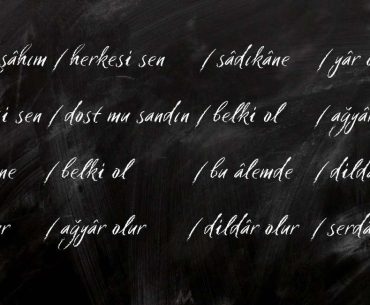 şâhım / herkesi sen / sâdıkâne / yâr o
i sen / dost mu sandın / belki ol / ağyâ
ne / belki ol / bu âlemde / dildâ
ur / ağyâr olur / dildâr olur / serda